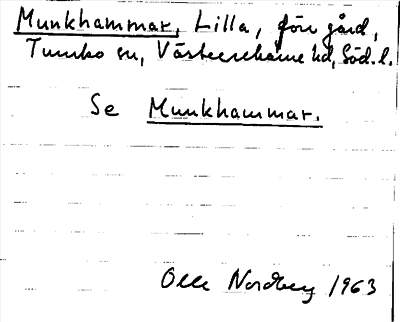 Munkhammar, Lilla, förr gård,
Tumbo sn, Västerrekarne hd, Söd. l.
Se Munkhammar.
Olle Nordberg 1963